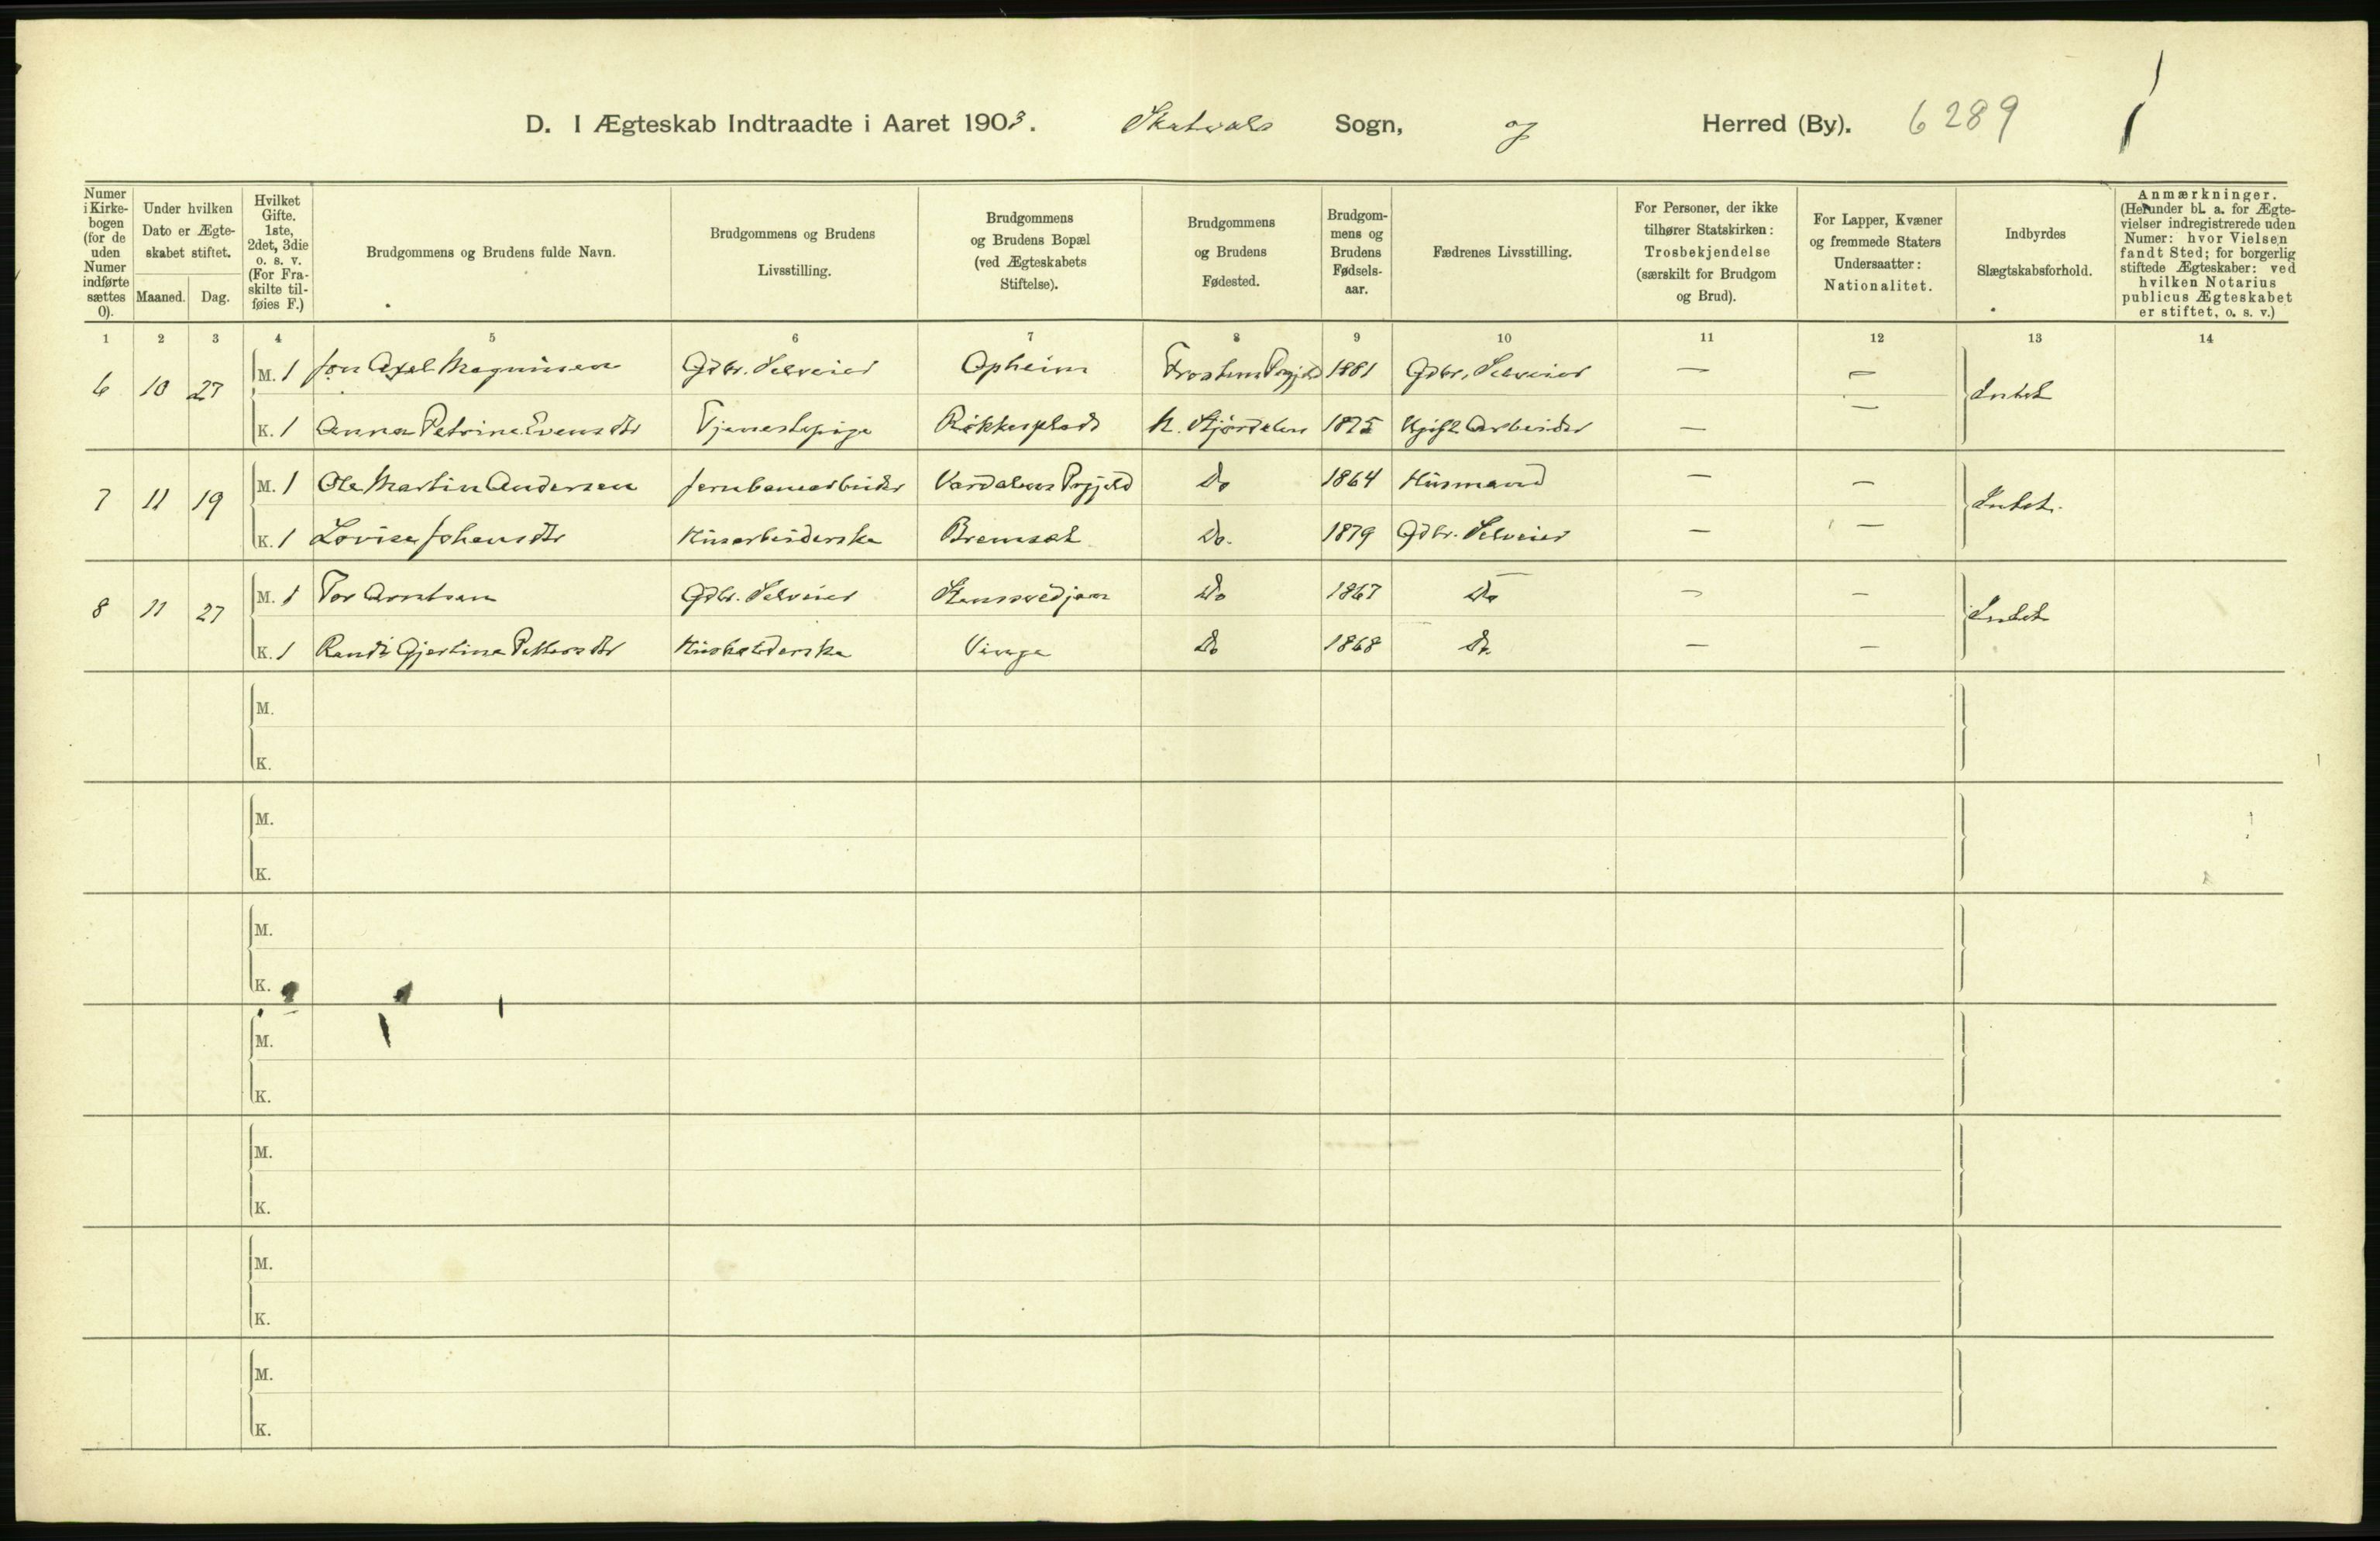 D. I Ægteskab Indtraadte i Aaret 1903. Skatvals Sogn, og Herred (By). 6289
Numer i Kirkebogen (for de uden Numer indførte sættes 0).
Under hvilken Dato er Ægteskabet stiftet.
Maaned. Dag.
Hvilket Gifte. 1ste, 2det, 3die o. s. v. (For Fraskilte tilføies F.)
Brudgommens og Brudens fulde Navn.
Brudgommens og Brudens Livsstilling.
Brudgommens og Brudens Bopæl (ved Ægteskabets Stiftelse).
Brudgommens og Brudens Fødested.
Brudgommens og Brudens Fødselsaar.
Fædrenes Livsstilling.
For Personer, der ikke tilhører Statskirken: Trosbekjendelse (særskilt for Brudgom og Brud).
For Lapper, Kvæner og fremmede Staters Undersaatter: Nationalitet.
Indbyrdes Slægtskabsforhold.
Anmærkninger. (Herunder bl. a. for Ægtevielser indregistrerede uden Numer: hvor Vielsen fandt Sted; for borgerlig stiftede Ægteskaber: ved hvilken Notarius publicus Ægteskabet er stiftet, o. s. v.)
1 2 3 4 5 6 7 8 9 10 11 12 13 14
6 10 27 M. 1 Jon Axel Magnussen Gdbr. Selveier Opheim Frostens Prgjeld 1881 Gdbr. Selveier — — Intet
K. 1 Anna Petrine Evensdtr Tjenestepige Røkkesplads N. Stjørdalen 1875 Ugift Arbeider — —
7 11 19 M. 1 Ole Martin Andersen Jernbanearbeider Værdalens Prgjeld Do 1864 Husmand — — Intet.
K. 1 Lovise Johansdtr Husarbeiderske Bremset Do. 1879 Gdbr. Selveier — —
8 11 27 M. 1 Tor Arntsen Gdbr. Selveier Do 1867 Do — — Intet
K. 1 Randi Gjertine Pettersdtr Husholderske Vinge Do 1868 Do — —
M.
K.
M.
K.
M.
K.
M.
K.
M.
K.
M.
K.
M.
K.